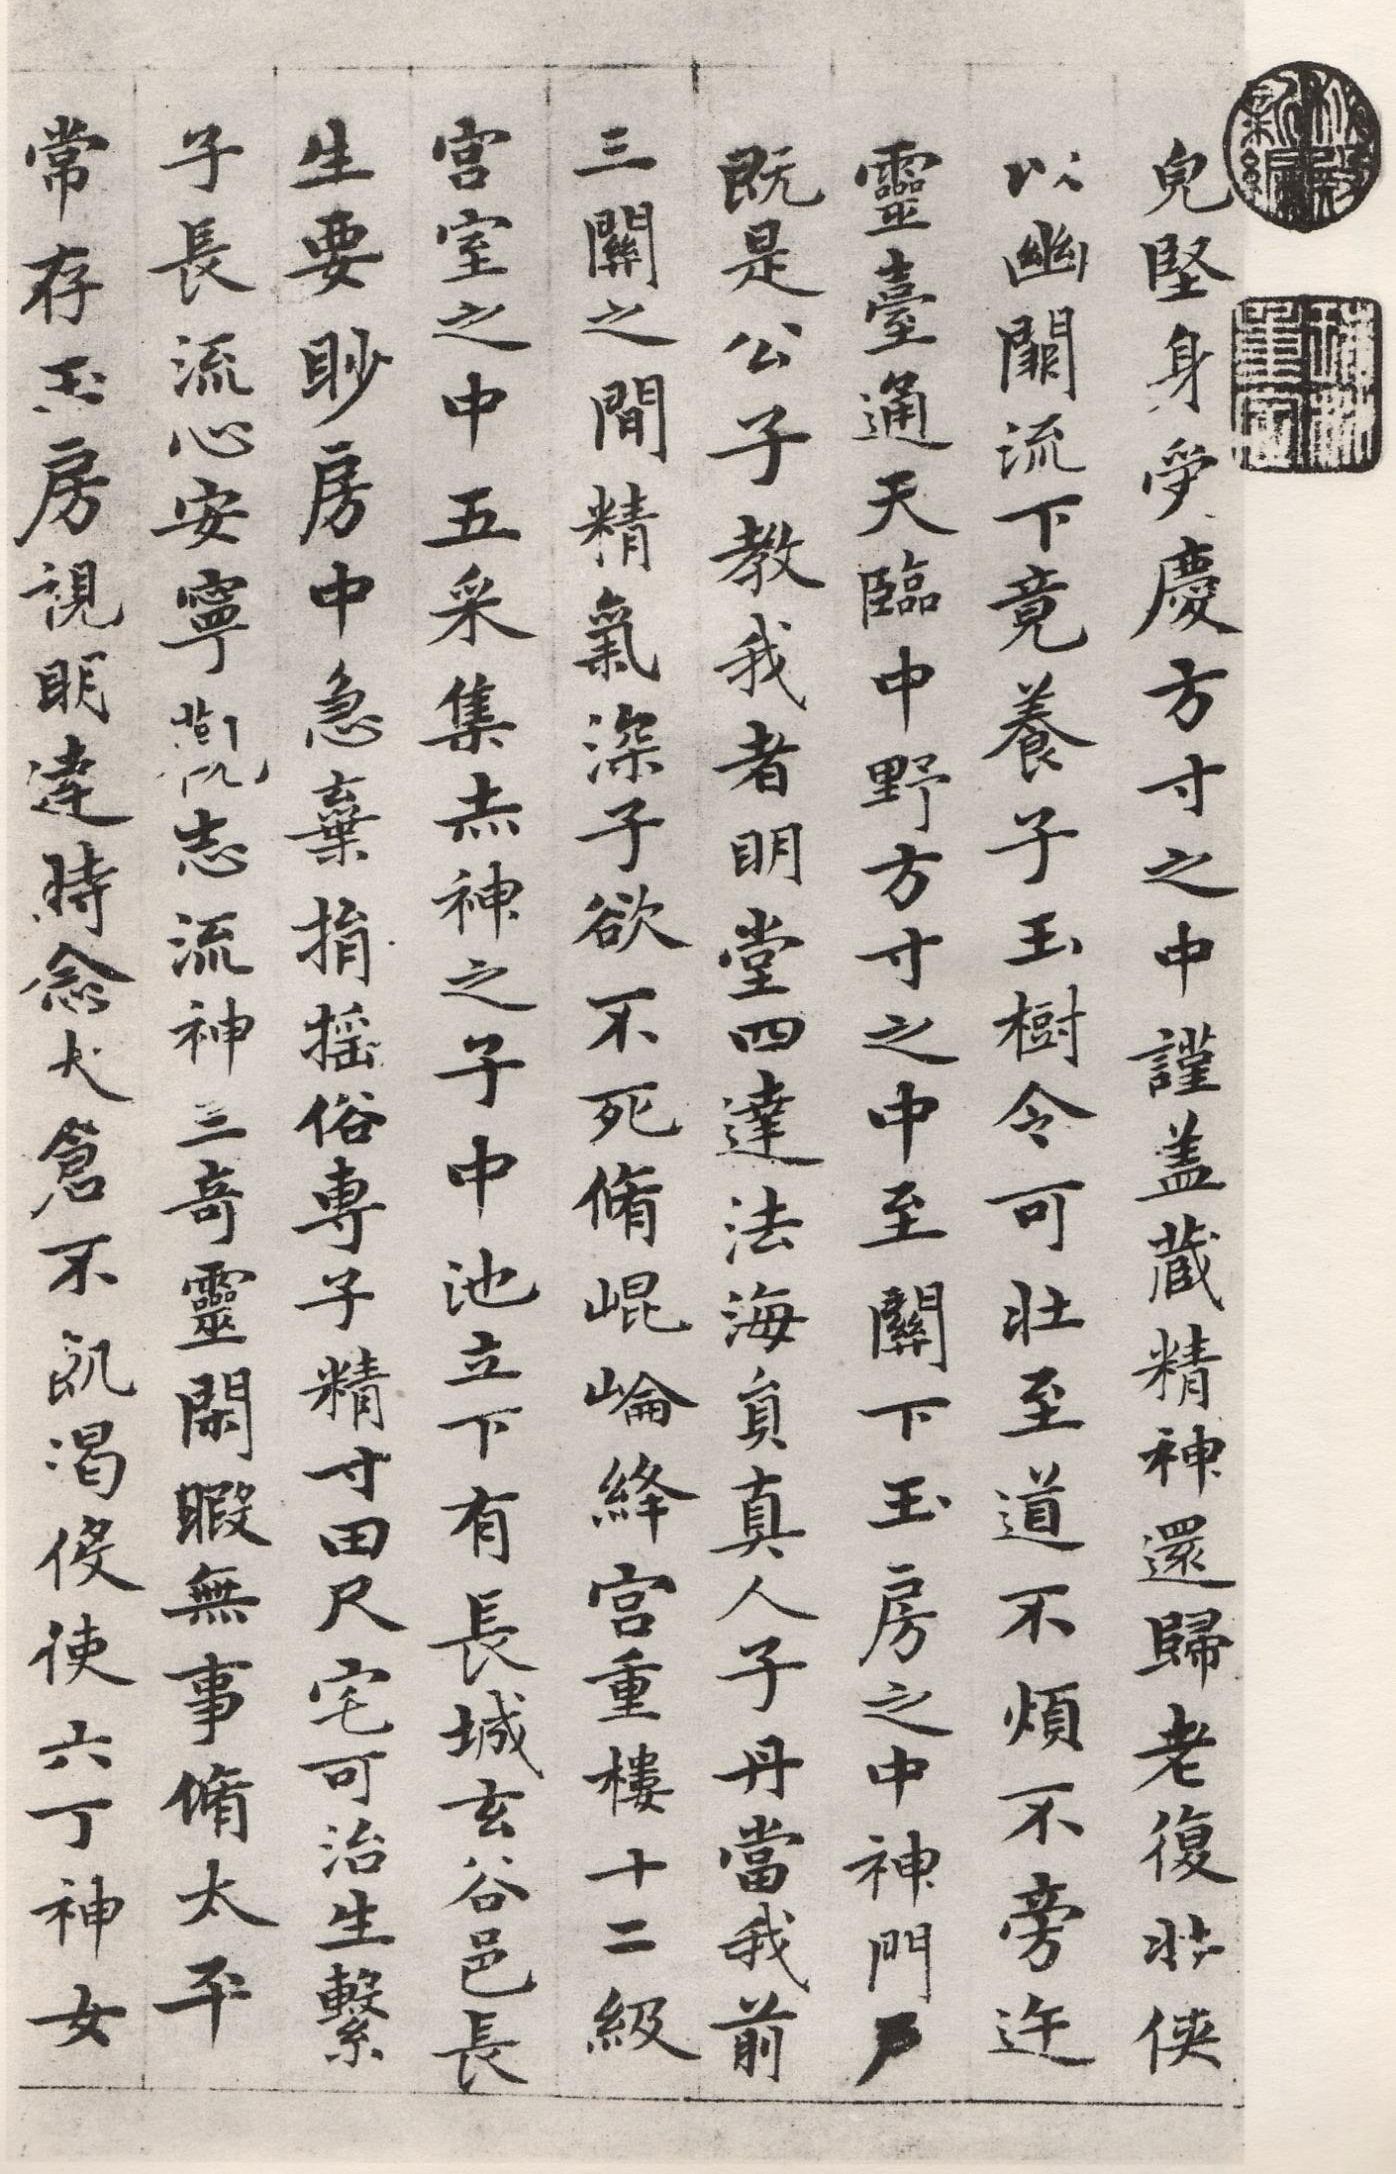 皃堅身受慶方寸之中謹盖蔵精神還歸老復壯俠
以幽闕流下竟養子玉樹令可壯至道不煩不旁迕
靈臺通天臨中野方寸之中至關下玉房之中神門戶
既是公子教我者明堂四達法海負真人子丹當我前
三關之間精氣深子欲不死脩崐崘絳宮重樓十二級
宮室之中五采集赤神之子中池立下有長城玄谷邑長
生要眇房中急棄捐摇俗專子精寸田尺宅可治生繫
子長流心安寧觀志流神三奇靈閑暇無事脩太平
常存玉房視明達時念大倉不飢渴伇使六丁神女